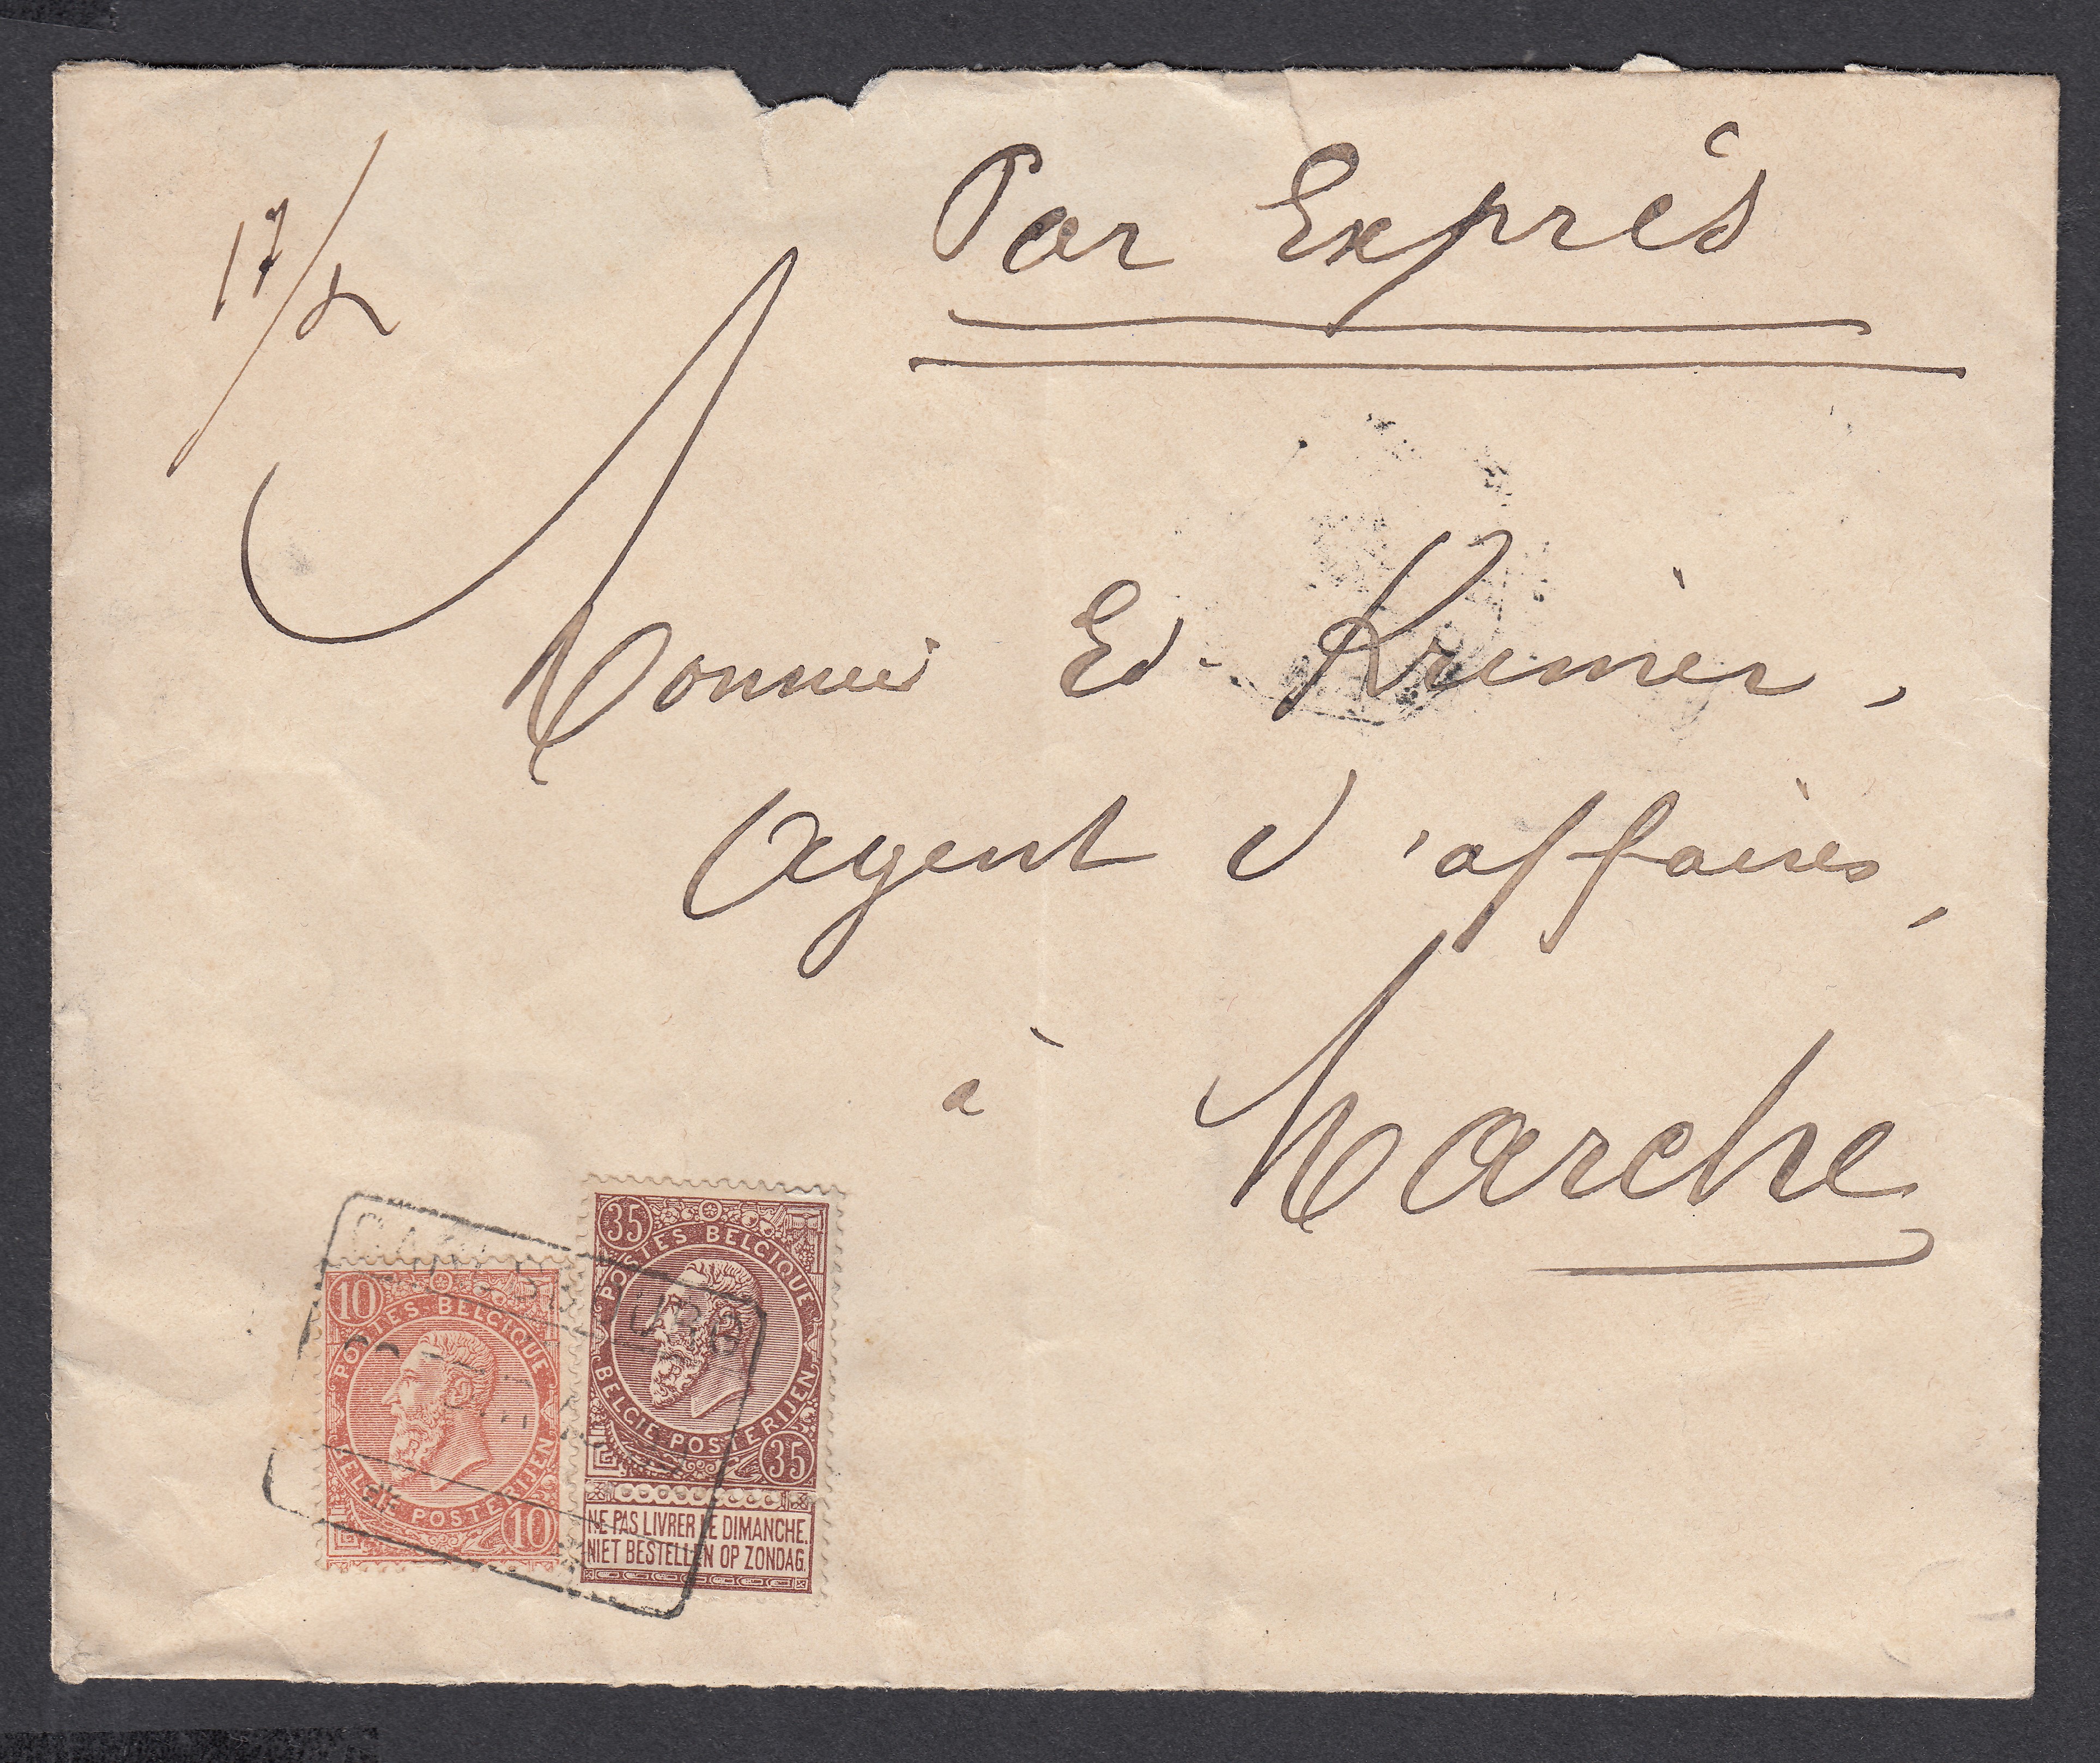 Par Exprès
17/
Monsieur Ed. Kremer,
Agent d'affaires,
à Marche
10
POSTES BELGIQUE
BELGIE POSTERIJEN
10
35
POSTES BELGIQUE
BELGIE POSTERIJEN
35
NE PAS LIVRER LE DIMANCHE.
NIET BESTELLEN OP ZONDAG.